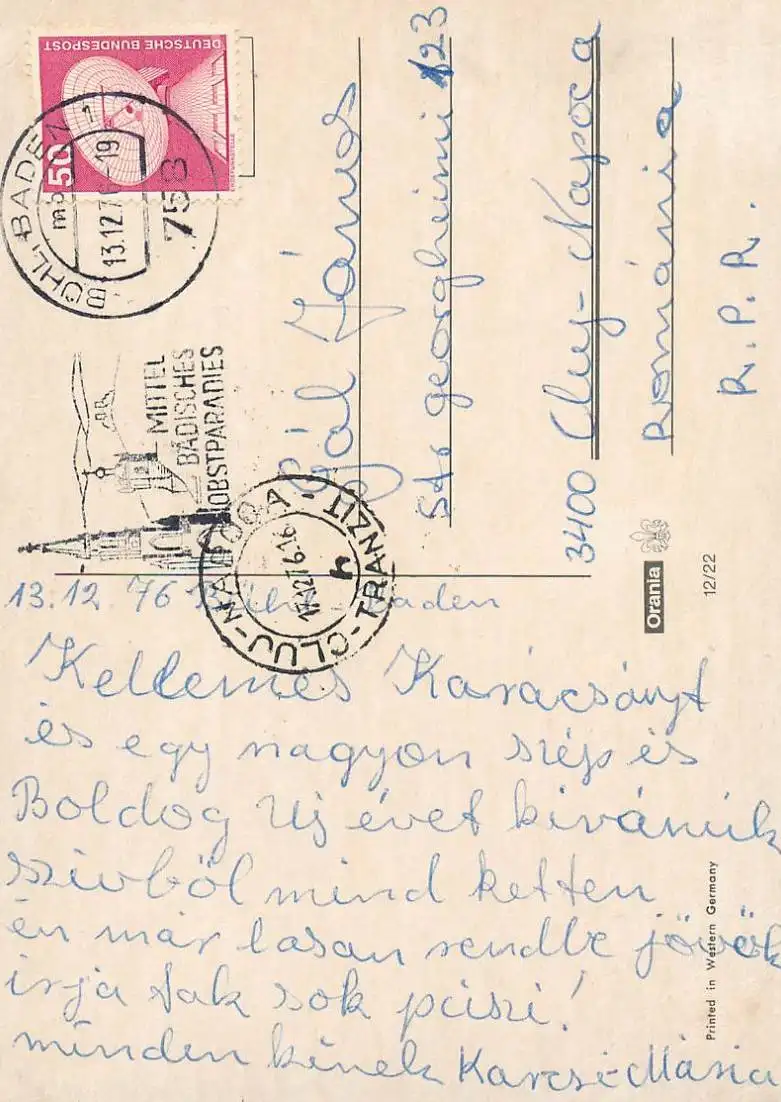 DEUTSCHE BUNDESPOST
50
BÜHL, BADEN 1
mb
13.12.76-19
758
MITTEL
BADISCHES
OBSTPARADIES
CLUJ-NAPOCA 4
17.12.76.16
h
TRANZIT
Gál János
Str georgheimi 123
3400 Cluj-Napoca
România
R.P.R.
Orania
12/22
Printed in Western Germany
13.12.76 Baden
Kellemes Karácsónyt
és egy nagyon szép és
Boldog Uj évet kivánúk
szivböl mind ketten
én már lasan rendbe jövök
irja tak sok puszi!
minden kinek Karcsi-Mária